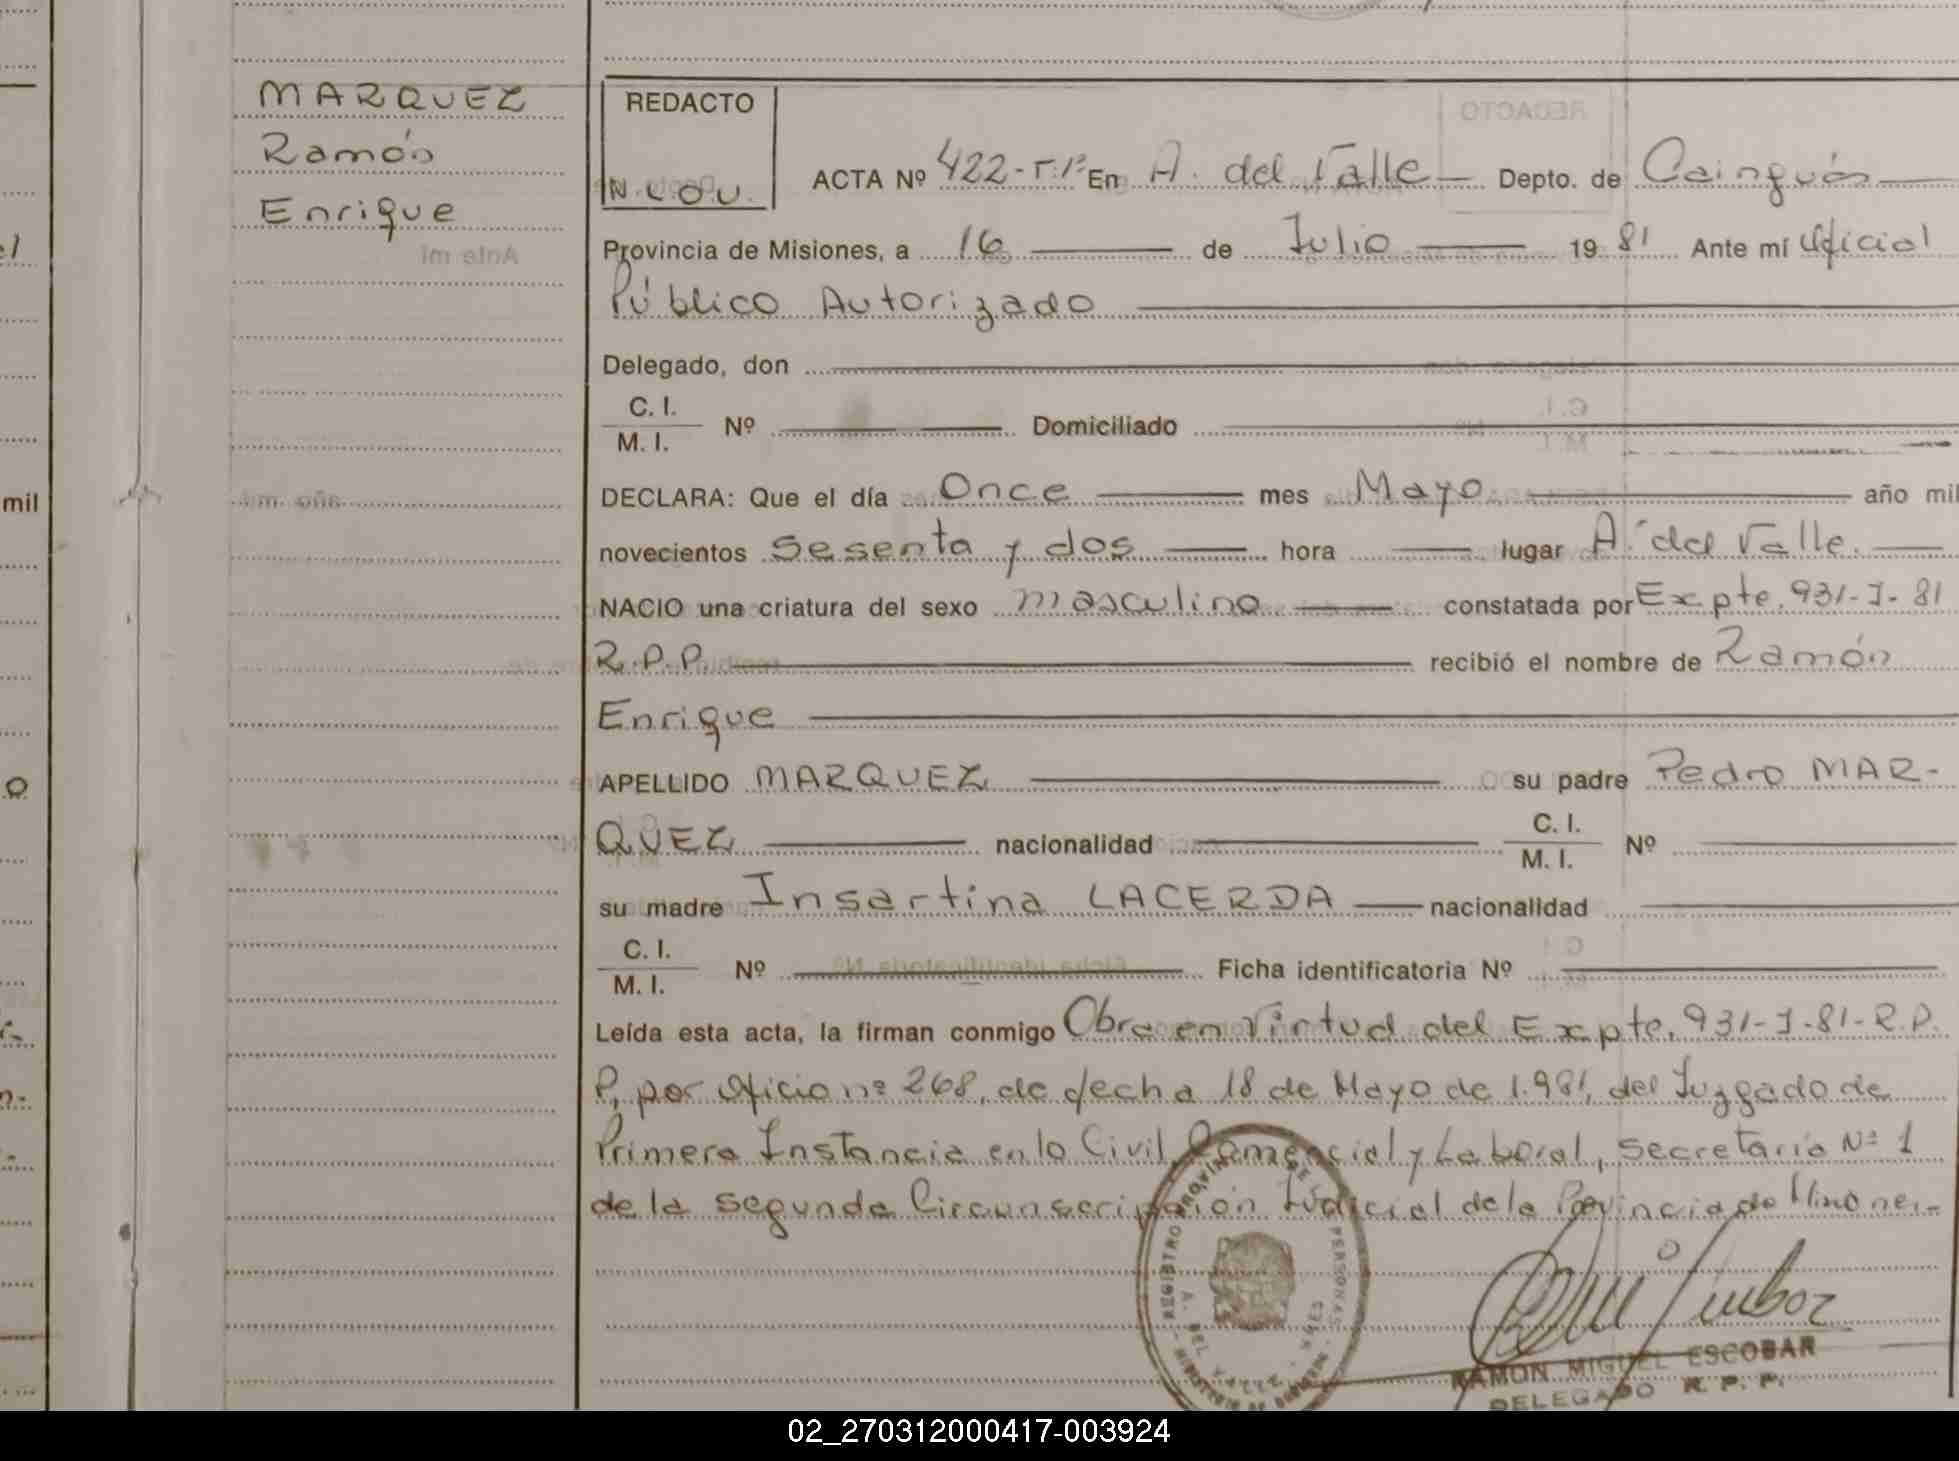 MARQUEZ
Ramón
Enrique
REDACTO
N.L.O.U.
ACTA Nº 422-T.1º En A. del Valle Depto. de Cainguás
Provincia de Misiones, a 16 de Julio 19 81 Ante mí Oficial
Público Autorizado
Delegado, don
C. I.
M. I.
Nº Domiciliado
DECLARA: Que el día Once mes Mayo año mil
novecientos Sesenta y dos hora lugar A. del Valle.
NACIO una criatura del sexo masculino constatada por Expte. 931-J-81
R.P.P. recibió el nombre de Ramón
Enrique
APELLIDO MARQUEZ su padre Pedro MAR-
QUEZ nacionalidad C. I. Nº
M. I.
su madre Insartina LACERDA nacionalidad
C. I.
M. I.
Nº Ficha identificatoria Nº
Leída esta acta, la firman conmigo Obra en Virtud del Expte. 931-J-81-R.P.
P, por Oficio nº 268, de fecha 18 de Mayo de 1.981, del Juzgado de
Primera Instancia en lo Civil, Comercial y Laboral, Secretaría Nº 1
de la Segunda Circunscripción Judicial de la Provincia de Misiones.-
REGISTRO PROVINCIAL DE LAS PERSONAS
A. DEL VALLE - MNES
RAMON MIGUEL ESCOBAR
DELEGADO R. P. P.
mil
02_270312000417-003924